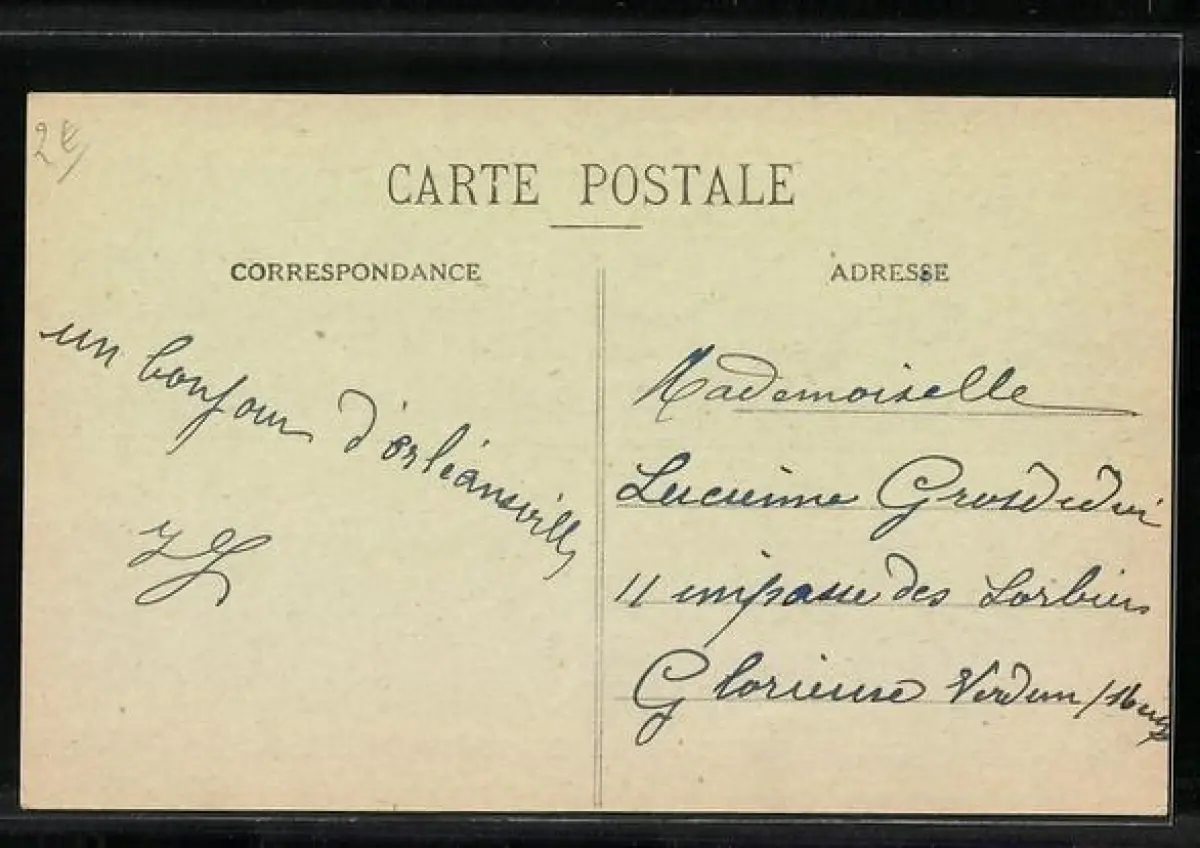 2€
CARTE POSTALE
CORRESPONDANCE
ADRESSE
un bonjour d'orléansville
Mademoiselle
Lucienne
11 impasse des Sorbiers
Glorieuse Verdun / Meuse